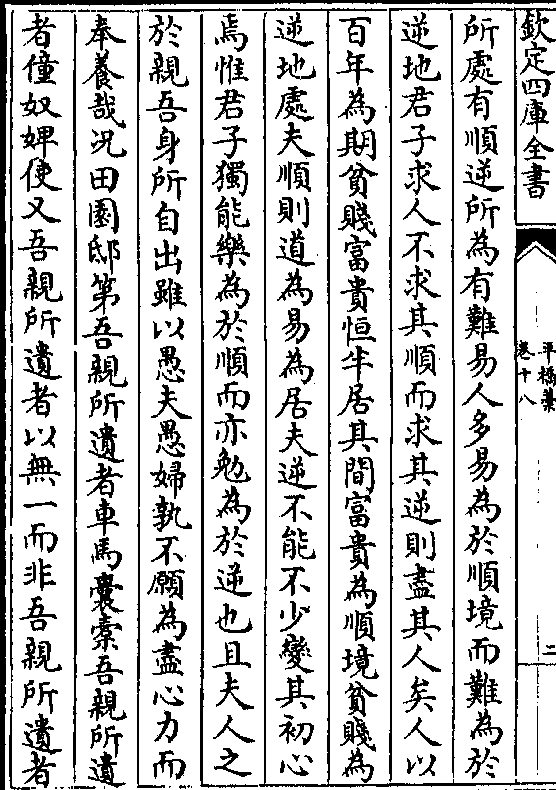 欽定四庫全書
平橋藁
卷十八
二
所處有順逆所為有難易人多易為於順境而難為於
逆地君子求人不求其順而求其逆則盡其人矣人以
百年為期貧賤富貴恒半居其間富貴為順境貧賤為
逆地處夫順則道為易為居夫逆不能不少變其初心
焉惟君子獨能樂為於順而亦勉為於逆也且夫人之
於親吾身所自出雖以愚夫愚婦孰不願為盡心力而
奉養哉况田園邸第吾親所遺者車馬囊橐吾親所遺
者僮奴婢使又吾親所遺者以無一而非吾親所遺者